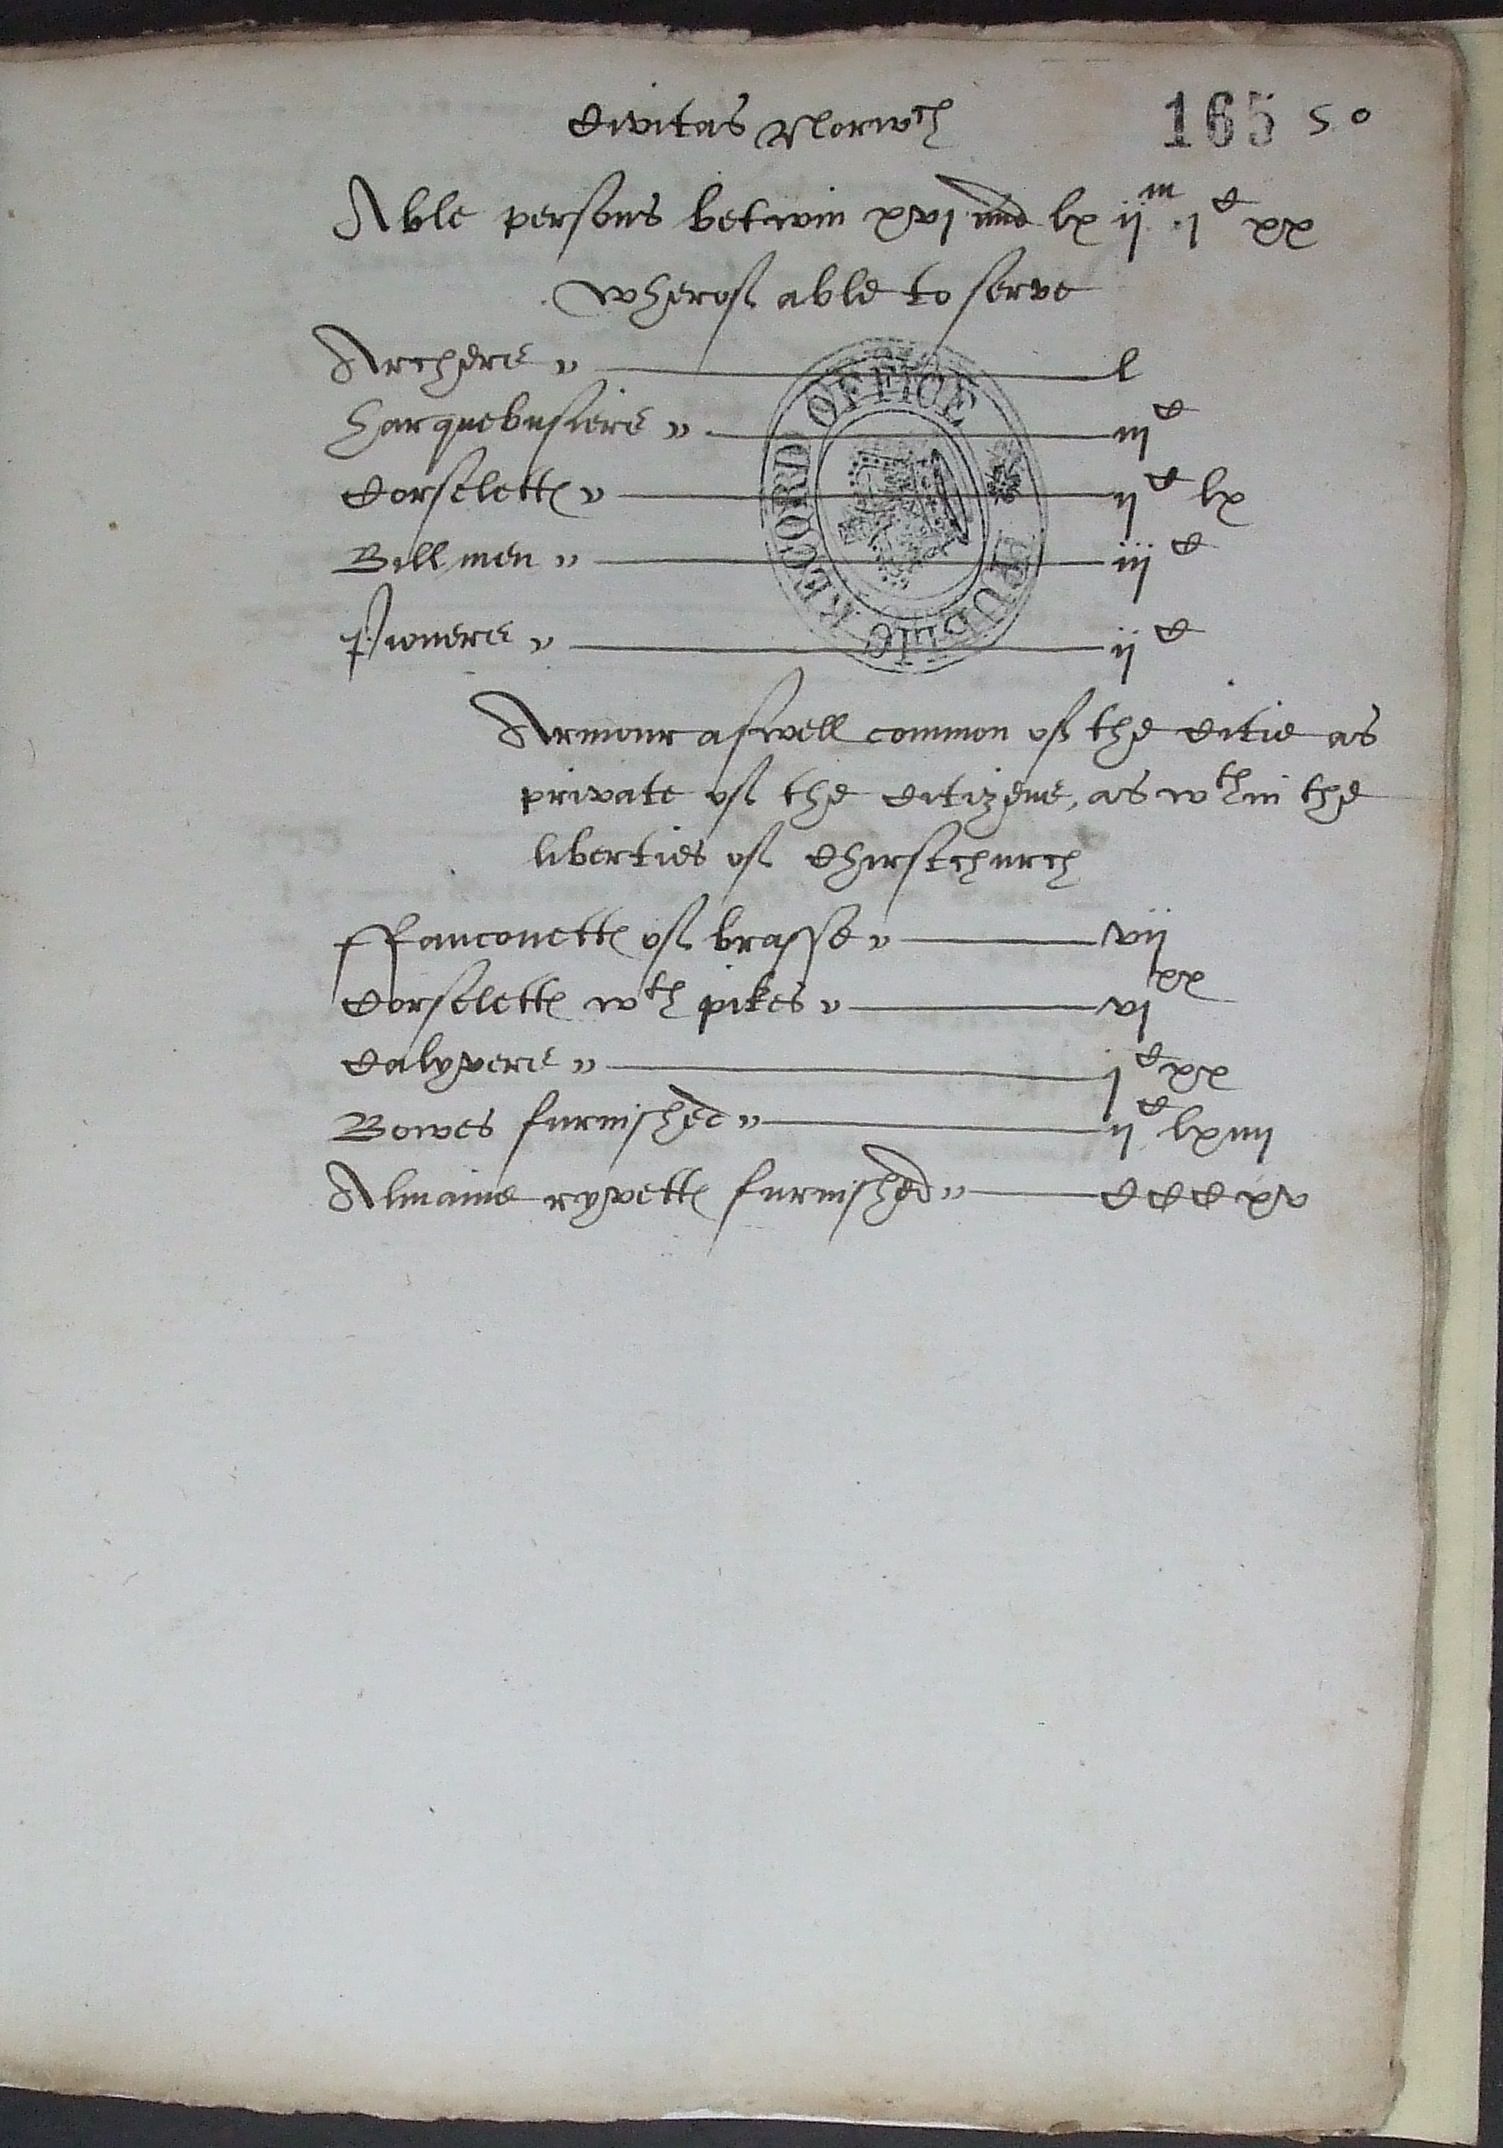 Civitas Norwch 165 50
Able persons betwin xvj and lx ijm .jC xx
wherof able to serve
Archers l
harquebusiers iijC
Corselettes ijC lx
Billmen iijC
Pioners ijC
Armour aswell common of the Citie as
private of the Citizens, as wthin the
liberties of Christchurch
ffauconettes of brasse vij
Corselettes wth pikes vjxx
Calyvers jC xx
Bowes furnished ijC lxiiij
Almaine ryvettes furnished CCC xv
PUBLIC RECORD OFFICE